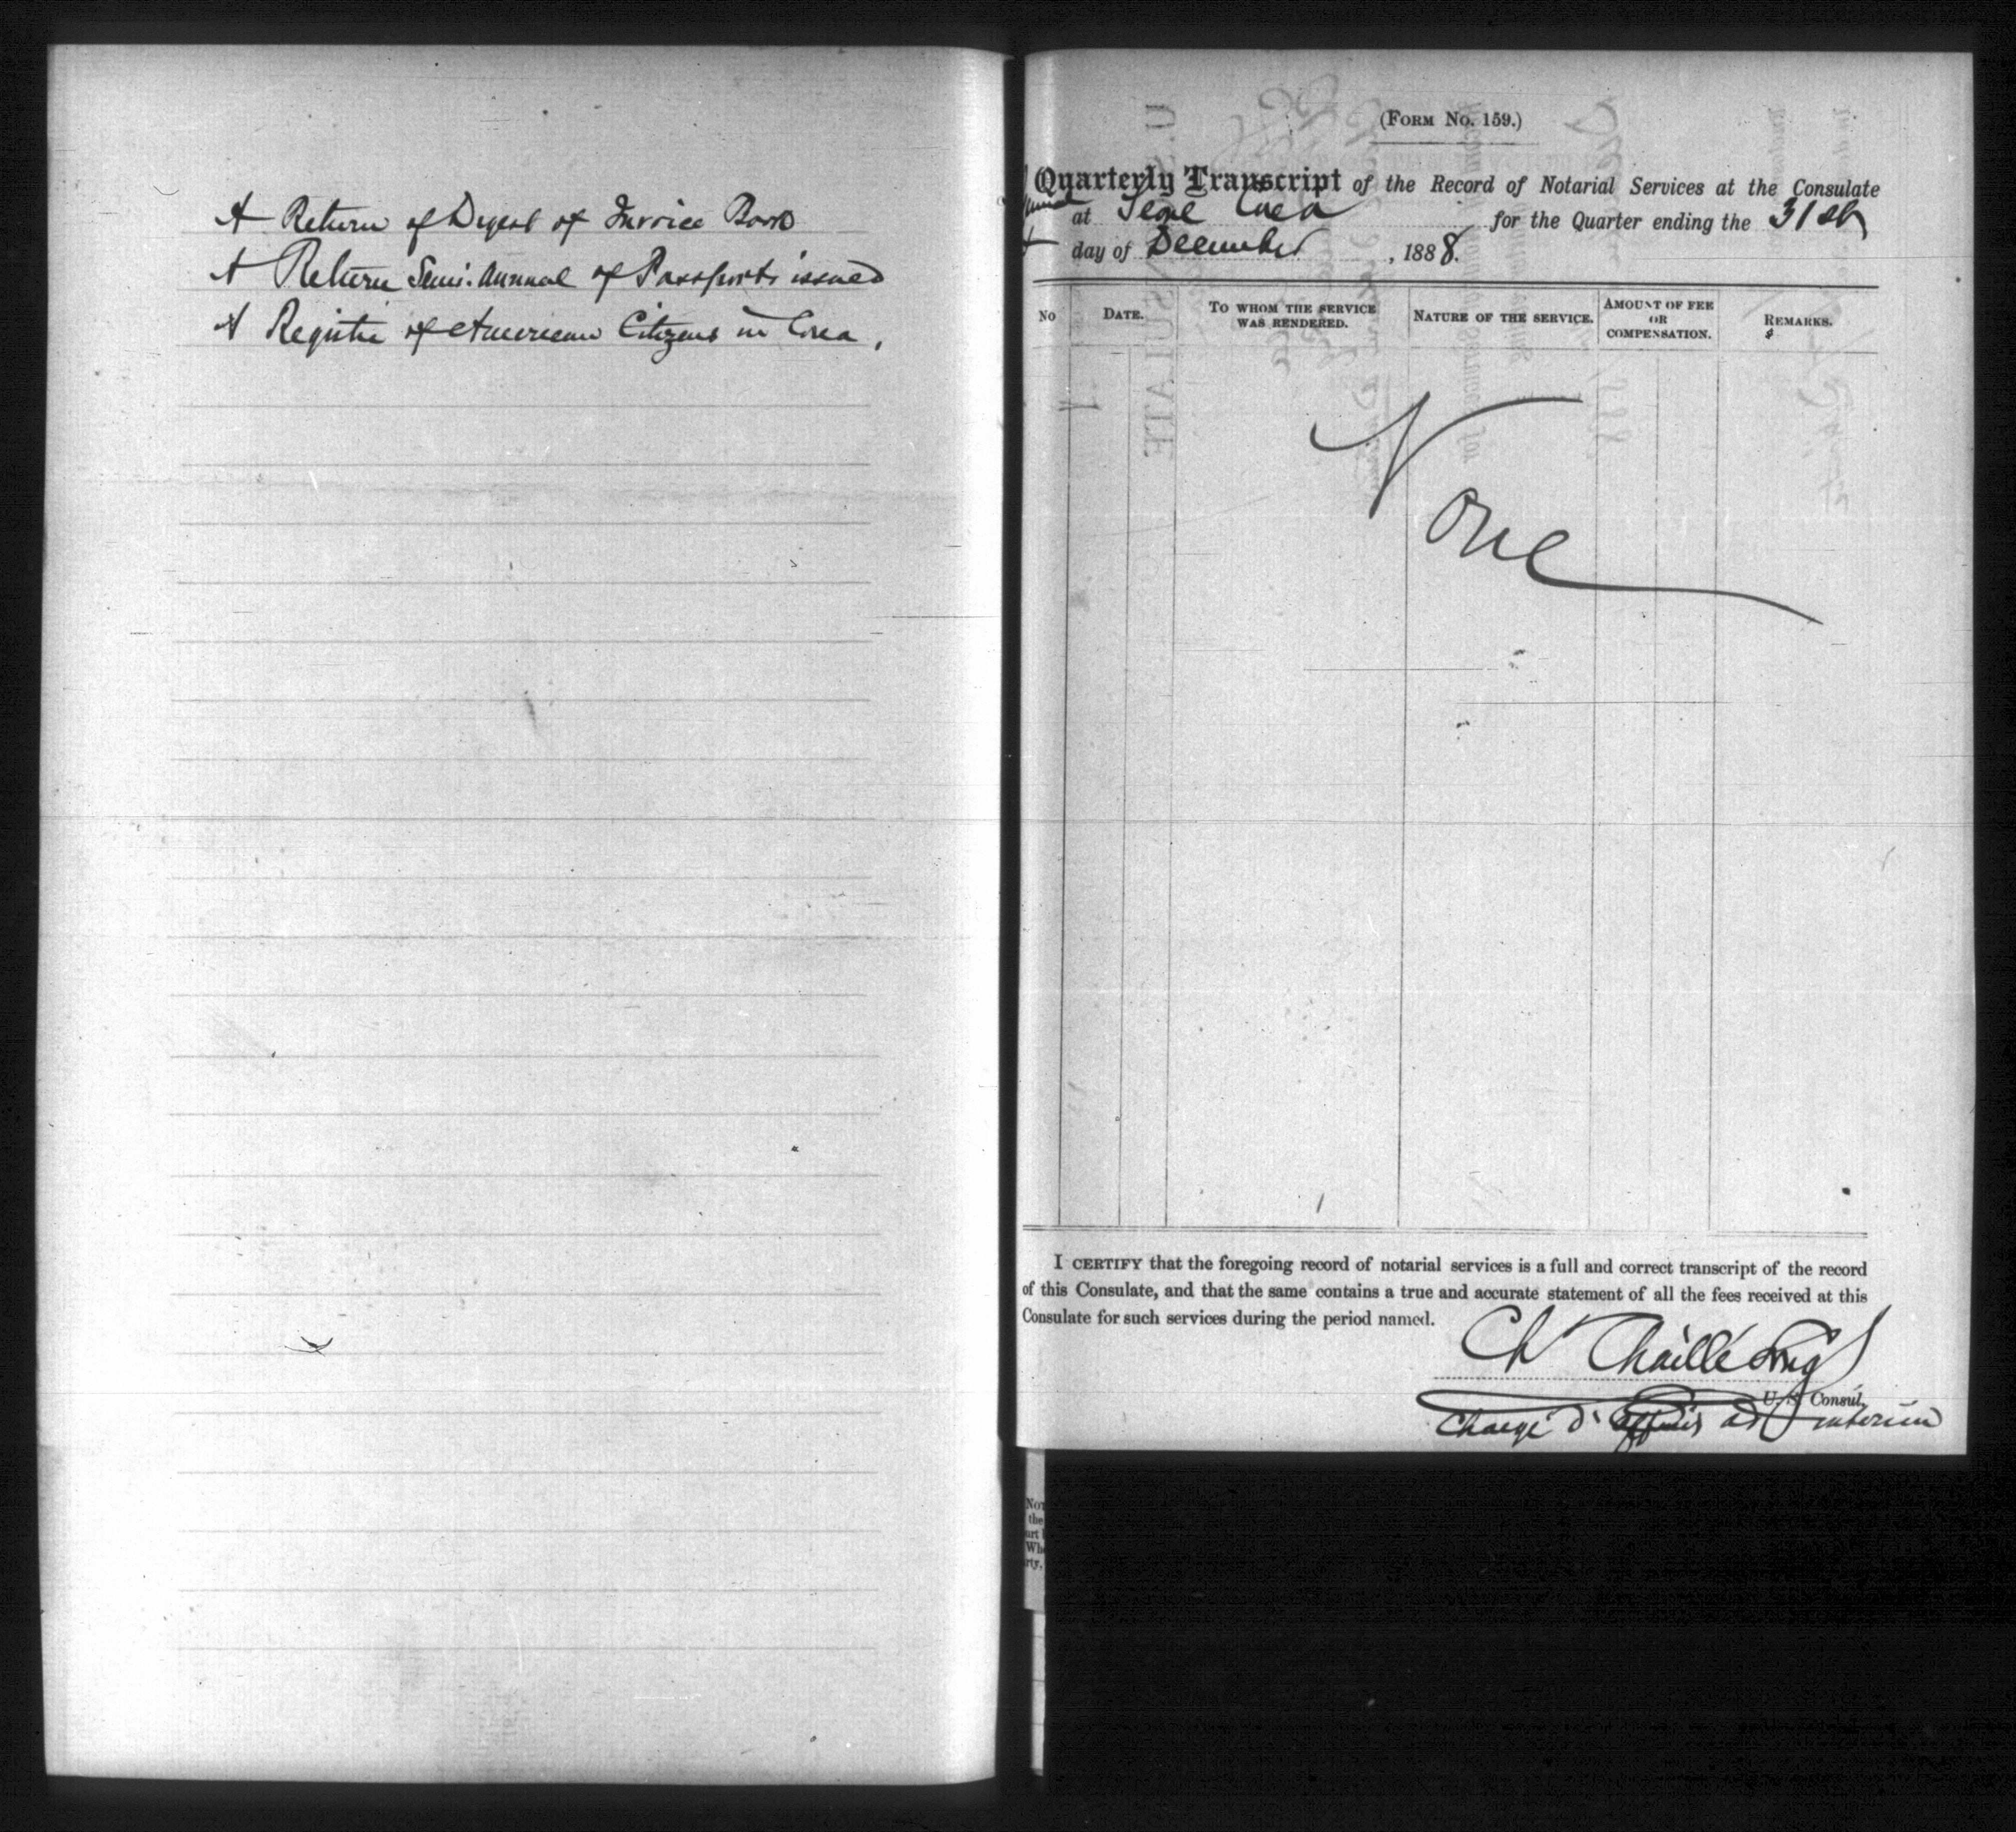 A Return of Digest of Invoice Book
A Return Semi-Annual of Passports issued
A Register of American Citizens in Corea,
(Form No. 159.)
Quarterly Transcript of the Record of Notarial Services at the Consulate
at Seoul Corea for the Quarter ending the 31st
day of December, 1888.
No
Date.
To whom the service was rendered.
Nature of the service.
Amount of fee or compensation.
Remarks.
$
None
I certify that the foregoing record of notarial services is a full and correct transcript of the record
of this Consulate, and that the same contains a true and accurate statement of all the fees received at this
Consulate for such services during the period named.
Ch Chaillé Long
U. S. Consul.
Chargé d'Affaires ad interim